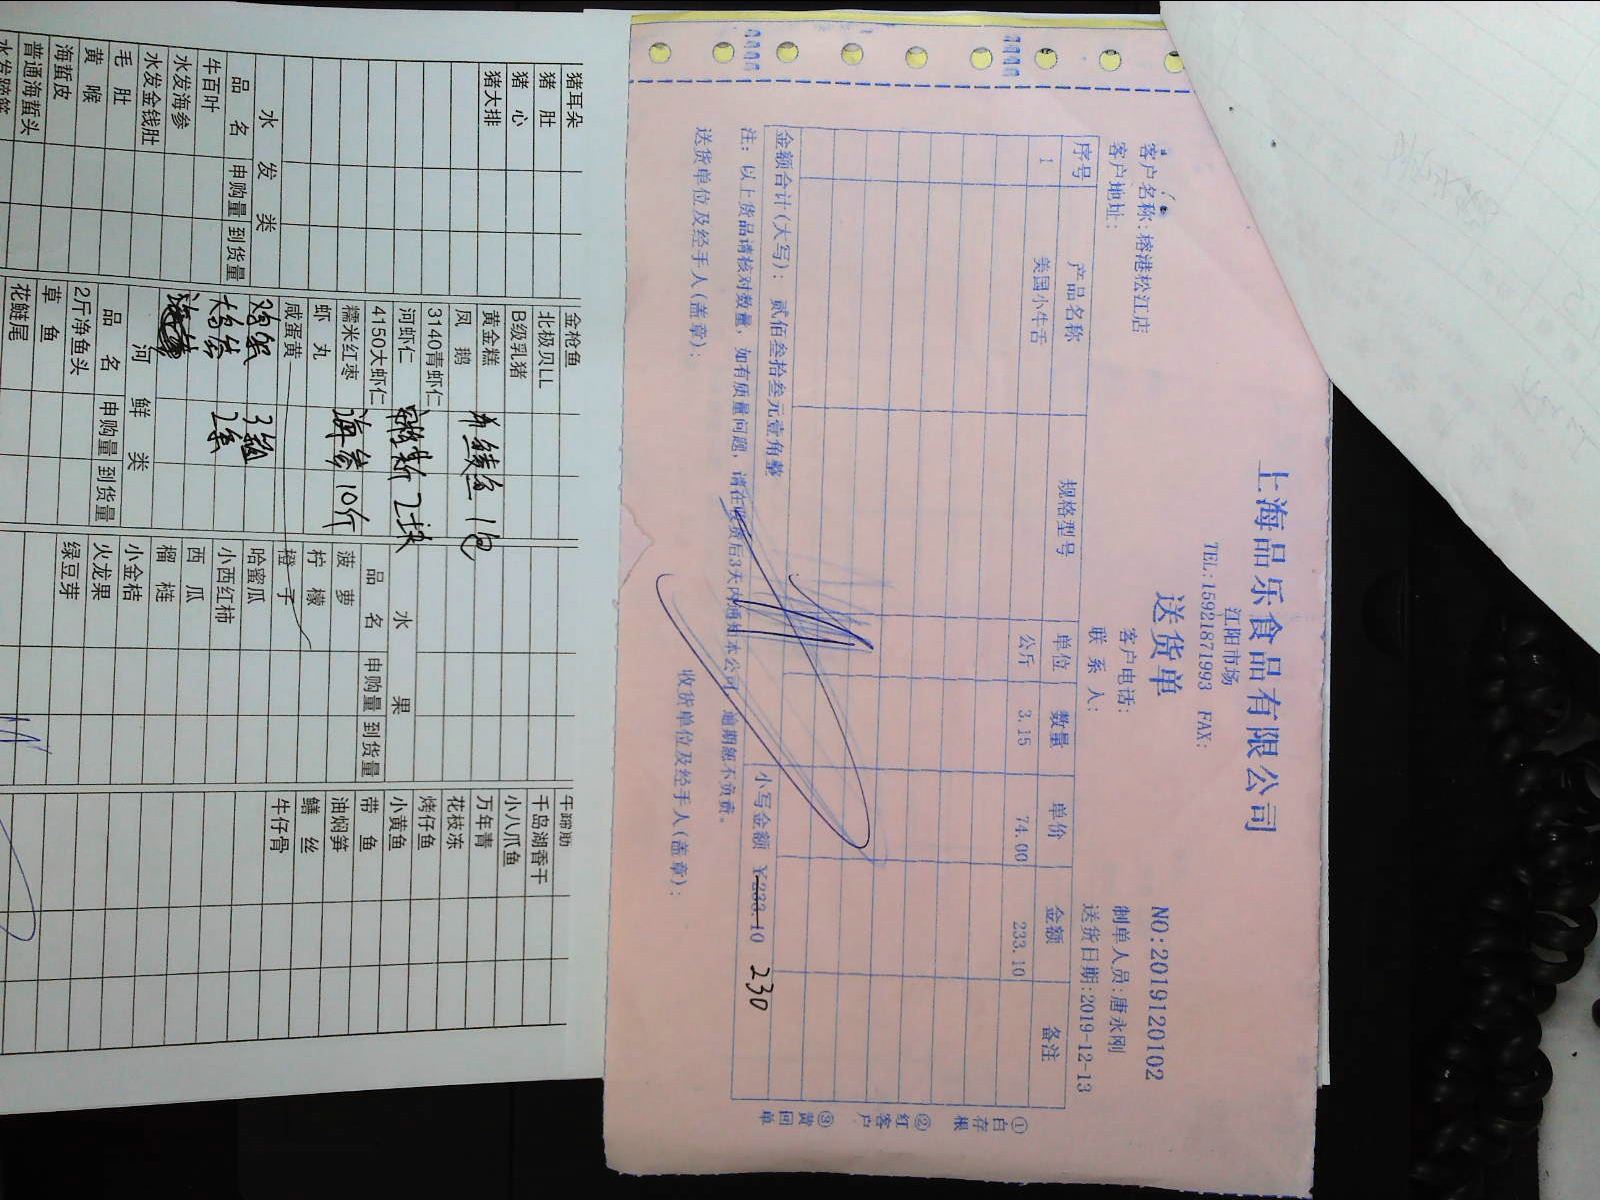 上海品乐食品有限公司
江阳市场
TEL:15921871993 FAX:
送货单
NO:2019120102
客户名称:榕港松江店
客户电话:
制单人员:唐永刚
客户地址:
联 系 人:
送货日期:2019-12-13
序号 产品名称 规格型号 单位 数量 单价 金额 备注
1 美国小牛舌 公斤 3.15 74.00 233.10
金额合计(大写): 贰佰叁拾叁元壹角整
小写金额 ¥233.10 230
注: 以上货品请核对数量, 如有质量问题, 请在收货后3天内通知本公司, 逾期恕不负责。
送货单位及经手人(盖章):
收货单位及经手人(盖章):
①白存根 ②红客户 ③黄回单
猪耳朵
猪 肚
猪 心
猪大排
水 发 类
品 名 申购量 到货量
牛百叶
水发海参
水发金钱肚
毛 肚
黄 喉
海蜇皮
普通海蜇头
金枪鱼
北极贝LL
B级乳猪
黄金糕
凤 鹅
3140青虾仁
河虾仁
4150大虾仁
糯米红枣 海参 10斤
虾 丸
咸蛋黄
河 鲜 类
品 名 申购量 到货量
2斤净鱼头
草 鱼
花鲢尾
水 果
品 名 申购量 到货量
菠 萝
柠 檬
橙 子
哈蜜瓜
小西红柿
西 瓜
榴 梿
小金桔
火龙果
绿豆芽
千岛湖香干
小八爪鱼
万年青
花枝冻
烤仔鱼
小黄鱼
带 鱼
油焖笋
鳝 丝
牛仔骨